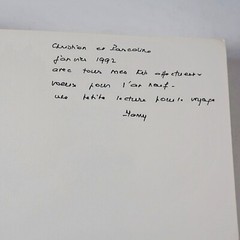 Christian et Pascaline
Janvier 1992
avec tous mes affectueux
voeux pour l'an neuf -
une petite lecture pour le voyage